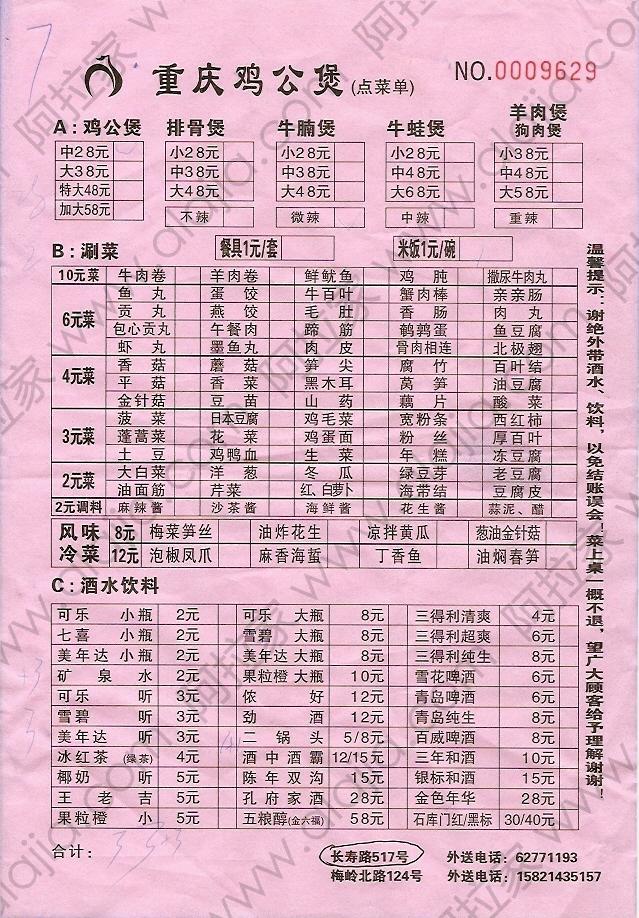 重庆鸡公煲(点菜单) NO.0009629
A:鸡公煲 排骨煲 牛腩煲 牛蛙煲 羊肉煲 狗肉煲
中28元 小28元 小28元 小28元 小38元
大38元 中38元 中38元 中48元 中48元
特大48元 大48元 大48元 大68元 大58元
加大58元 不辣 微辣 中辣 重辣
B:涮菜 餐具1元/套 米饭1元/碗
10元菜 牛肉卷 羊肉卷 鲜鱿鱼 鸡肫 撒尿牛肉丸
6元菜
鱼丸 蛋饺 牛百叶 蟹肉棒 亲亲肠
贡丸 燕饺 毛肚 香肠 肉丸
包心贡丸 午餐肉 蹄筋 鹌鹑蛋 鱼豆腐
虾丸 墨鱼丸 肉皮 骨肉相连 北极翅
4元菜
香菇 蘑菇 笋尖 腐竹 百叶结
平菇 香菜 黑木耳 莴笋 油豆腐
金针菇 豆苗 山药 藕片 酸菜
3元菜
菠菜 日本豆腐 鸡毛菜 宽粉条 西红柿
蓬蒿菜 花菜 鸡蛋面 粉丝 厚百叶
土豆 鸡鸭血 生菜 年糕 冻豆腐
2元菜
大白菜 洋葱 冬瓜 绿豆芽 老豆腐
油面筋 芹菜 红、白萝卜 海带结 豆腐皮
2元调料 麻辣酱 沙茶酱 海鲜酱 花生酱 蒜泥、醋
风味 8元 梅菜笋丝 油炸花生 凉拌黄瓜 葱油金针菇
冷菜 12元 泡椒凤爪 麻香海蜇 丁香鱼 油焖春笋
C:酒水饮料
可乐 小瓶 2元 可乐 大瓶 8元 三得利清爽 4元
七喜 小瓶 2元 雪碧 大瓶 8元 三得利超爽 6元
美年达 小瓶 2元 美年达 大瓶 8元 三得利纯生 8元
矿泉水 2元 果粒橙 大瓶 10元 雪花啤酒 6元
可乐 听 3元 侬好 12元 青岛啤酒 6元
雪碧 听 3元 劲酒 12元 青岛纯生 8元
美年达 听 3元 二锅头 5/8元 百威啤酒 8元
冰红茶(绿茶) 4元 酒中酒霸 12/15元 三年和酒 10元
椰奶 听 5元 陈年双沟 15元 银标和酒 15元
王老吉 5元 孔府家酒 28元 金色年华 28元
果粒橙 小 5元 五粮醇(金六福) 58元 石库门红/黑标 30/40元
合计: 长寿路517号 外送电话:62771193
梅岭北路124号 外送电话:15821435157
温馨提示:谢绝外带酒水、饮料,以免结账误会!菜上桌一概不退,望广大顾客给予理解谢谢!
阿拉家 www.alajia.com